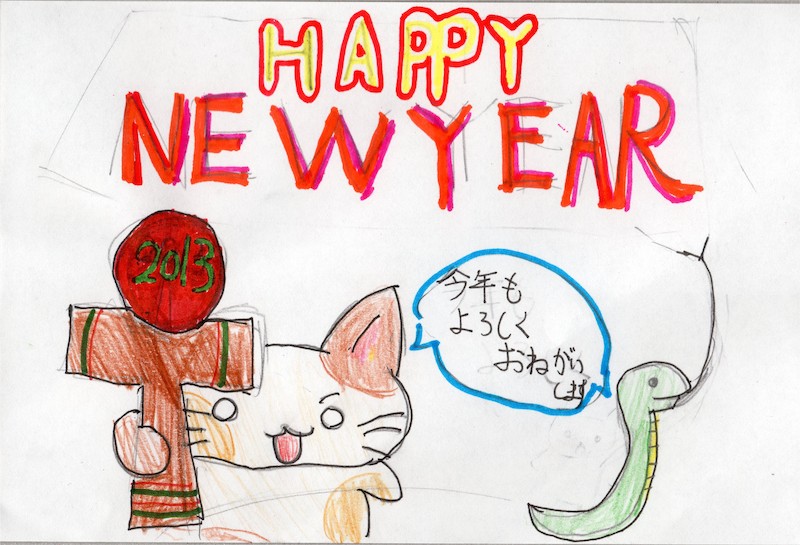 HAPPY
NEW YEAR
2013
今年も
よろしく
おねがい
します